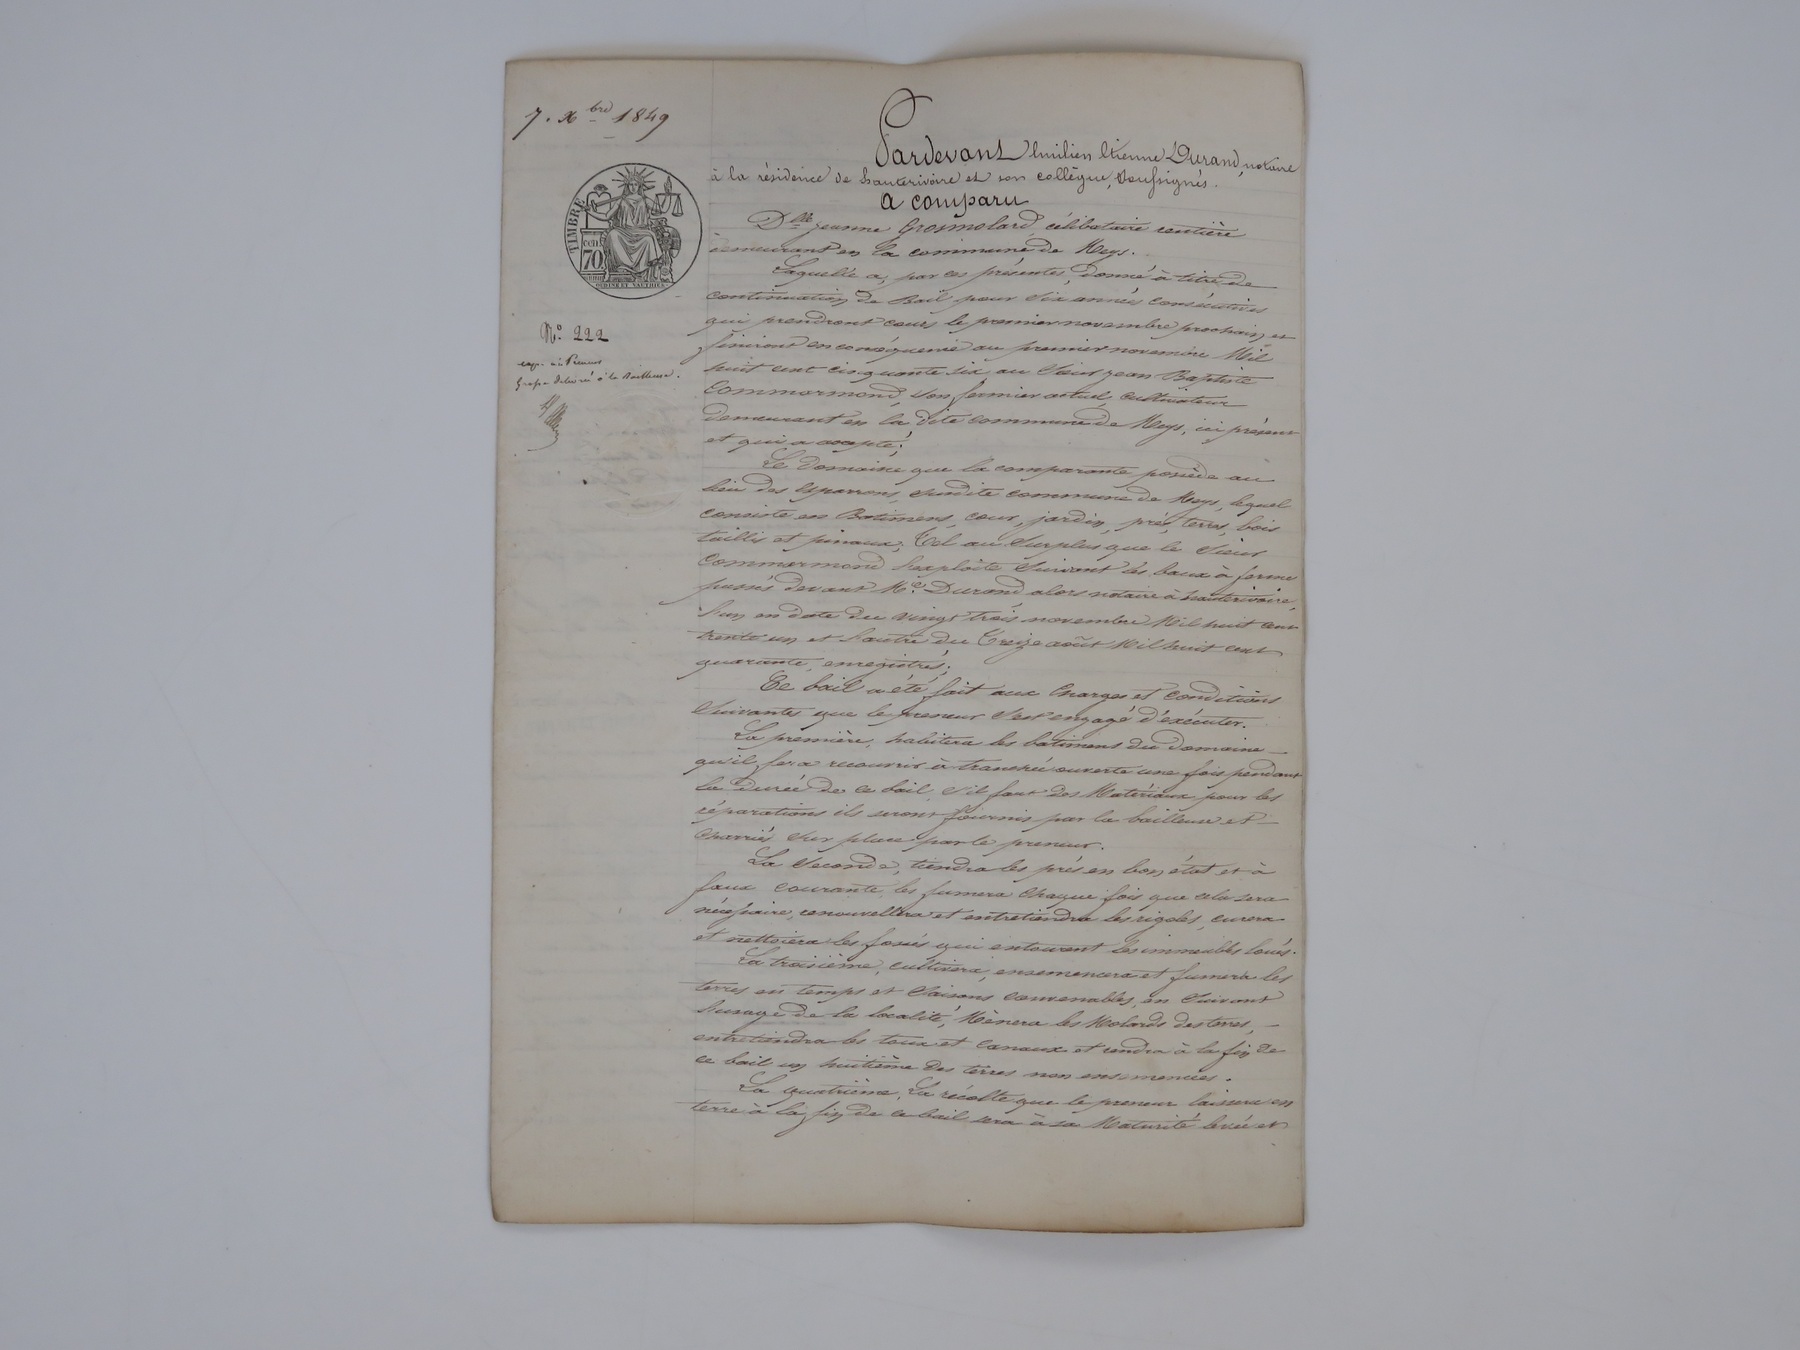 7. Xbre 1849
Pardevant Emilien Etienne Durand, notaire
à la résidence de hauterivoire et son collègue, soussignés.
a comparu
TIMBRE
CEN 70
OUDINE ET VAUTHIER
N° 222
Dlle Jeanne Grosmolard, célibataire rentière
demeurant en la commune de Meys.
Laquelle a, par ces présentes, donné à titre de
continuation de Bail pour six années consécutives
qui prendront cours le premier novembre prochain et
finiront en conséquence au premier novembre Mil
huit cent cinquante six au Sieur Jean Baptiste
Commarmond, son fermier actuel, cultivateur
demeurant en la dite commune de Meys, ici présent
et qui a accepté;
Le Domaine que la comparante possède au
lieu des susdite commune de Meys, lequel
consiste en Batimens, cour, jardin, prés, terres, bois
taillis et pinaux, Tel au Surplus que le Sieur
Commarmond l'exploite Suivant les baux à ferme
passés devant Me Durand alors notaire à hauterivoire,
l'un en date du vingt trois novembre Mil huit cent
trente un et l'autre du Treize août Mil huit cent
quarante, enregistrés.
Ce bail a été fait aux Charges et Conditions
Suivantes que le preneur s'est engagé d'exécuter.
La première, habitera les batimens du domaine
qu'il fera recouvrir à tranchée ouverte une fois pendant
la durée de ce bail, s'il faut des Matériaux pour les
réparations ils seront fournis par la bailleuse et
charriés sur place par le preneur.
La Seconde, tiendra les prés en bon état et à
faux courante, les fumera chaque fois que cela sera
nécessaire, renouvellera et entretiendra les rigoles, curera
et nettoiera les fossés qui entourent les immeubles loués.
La troisième, cultivera, ensemencera et fumera les
terres en temps et Saisons convenables, en Suivant
l'usage de la localité, Mènera les Molards des terres,
entretiendra les et canaux et rendra à la fin de
ce bail un huitième des terres non ensemencées.
La quatrième, La récolte que le preneur laissera en
terre à la fin de ce bail sera à sa Maturité levée et